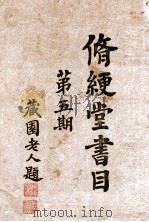 脩綆堂書目
第五期
藏園老人題
www.duxiu.com